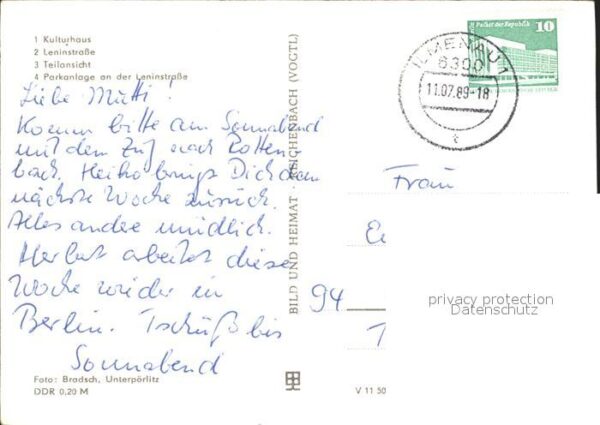 1 Kulturhaus
2 Leninstraße
3 Teilansicht
4 Parkanlage an der Leninstraße
Liebe Mutti!
Komm bitte am Sonnabend
mit dem Zug nach Rotten-
bach. Heiko bringt Dich dann
nächste Woche zurück.
Alles andre mündlich.
Herbert arbeitet diese
Woche wieder in
Berlin. Tschüß bis
Sonnabend
Foto: Bradsch, Unterpörlitz
DDR 0,20 M
BILD UND HEIMAT REICHENBACH (VOGTL)
V 11 50
Palast der Republik 10
ILMENAU 1
6300
11.07.89-18
t
Frau
94
T
privacy protection
Datenschutz